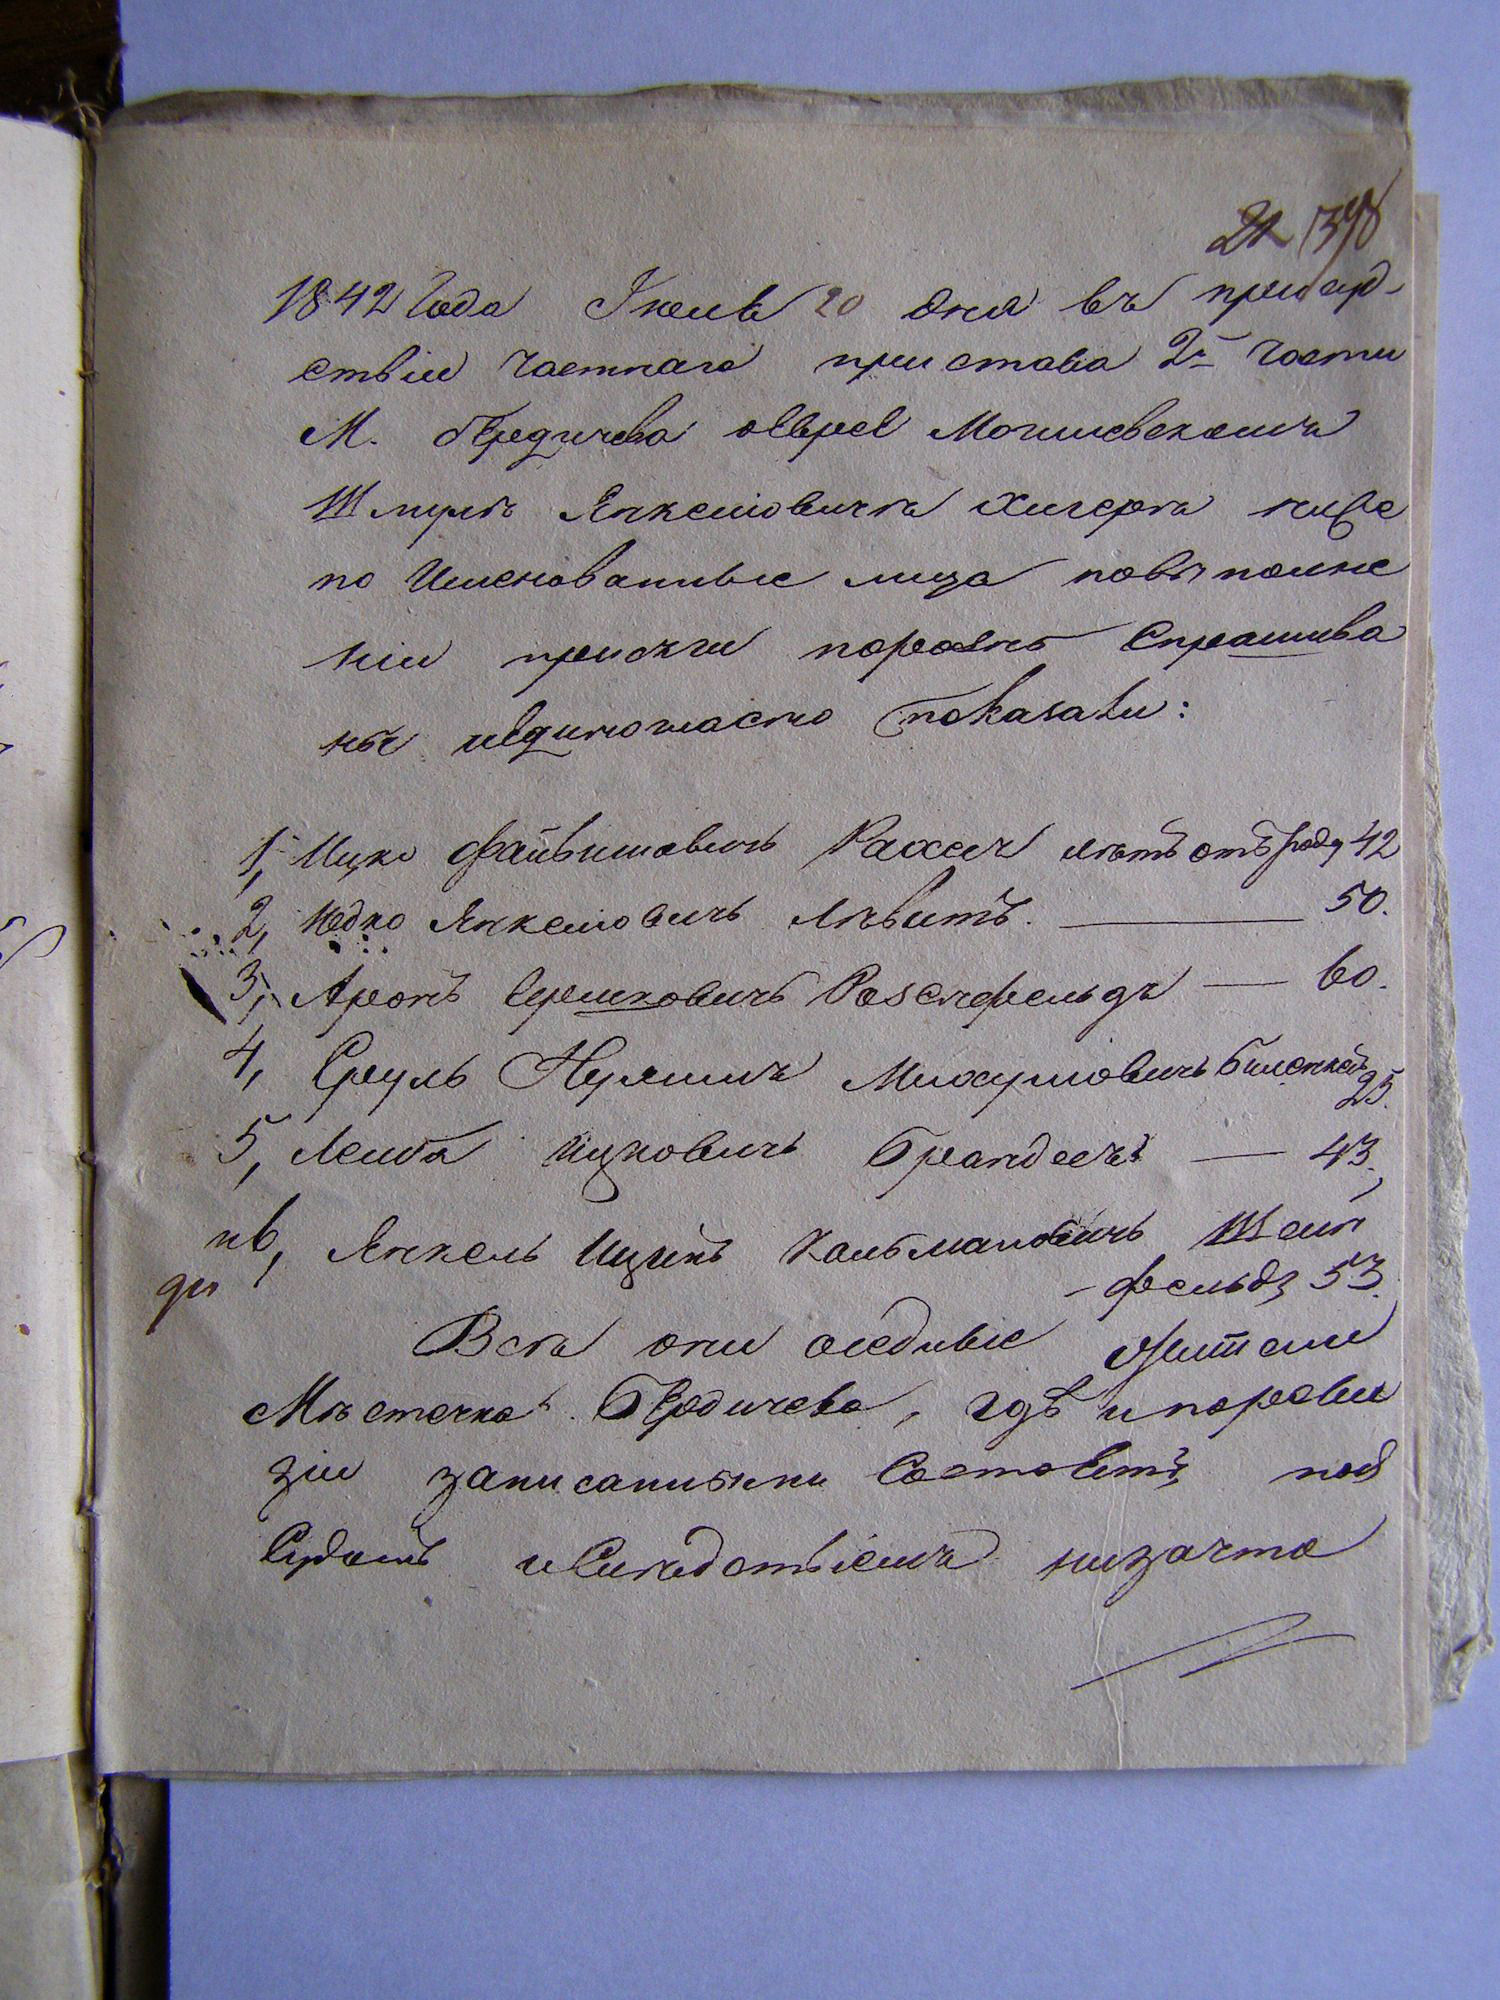 21 398
1842 Года Июля 20 дня въ присуд-
ствіи частнаго пристава 2й части
М. Бердичева оевреѣ Могилевскомъ
Шмулѣ Янкеліовичѣ Хигерѣ ниже
по Именованные лица повыполне
ніи присяги порознь Спрашива
ные иединогласно показали:
1, Ицко Файвишовичъ Рахесъ лѣтъ отъ роду 42
2, Іедко Янкеліовичъ Лѣвитъ. 50.
3, Аронъ Срульковичъ Розенфельдъ 60.
4, Сруль Нухимъ Михуліовичъ Биленкой
25.
5, Лейба Ицковичъ Брандесъ 43.
6, Янкель Ицикъ Кальмановичъ Шейн
фельдъ 53.
Всѣ они оседлые Жители
Мѣстечка Бердичева, гдѣ и пореви
зіи записанными Состоятъ, под
Судомъ иСлѣдствіемъ низачто